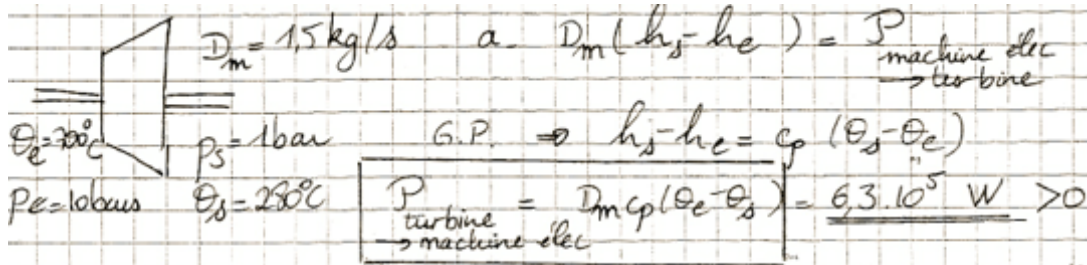 D_m = 1,5 kg/s a. D_m (h_s - h_e) = P machine élec → turbine
θ_e = 700°C p_s = 1 bar G.P. ⇒ h_s - h_e = c_p (θ_s - θ_e)
p_e = 10 bars θ_s = 280°C P turbine → machine élec = D_m c_p (θ_e - θ_s) = 6,3.10^5 W > 0